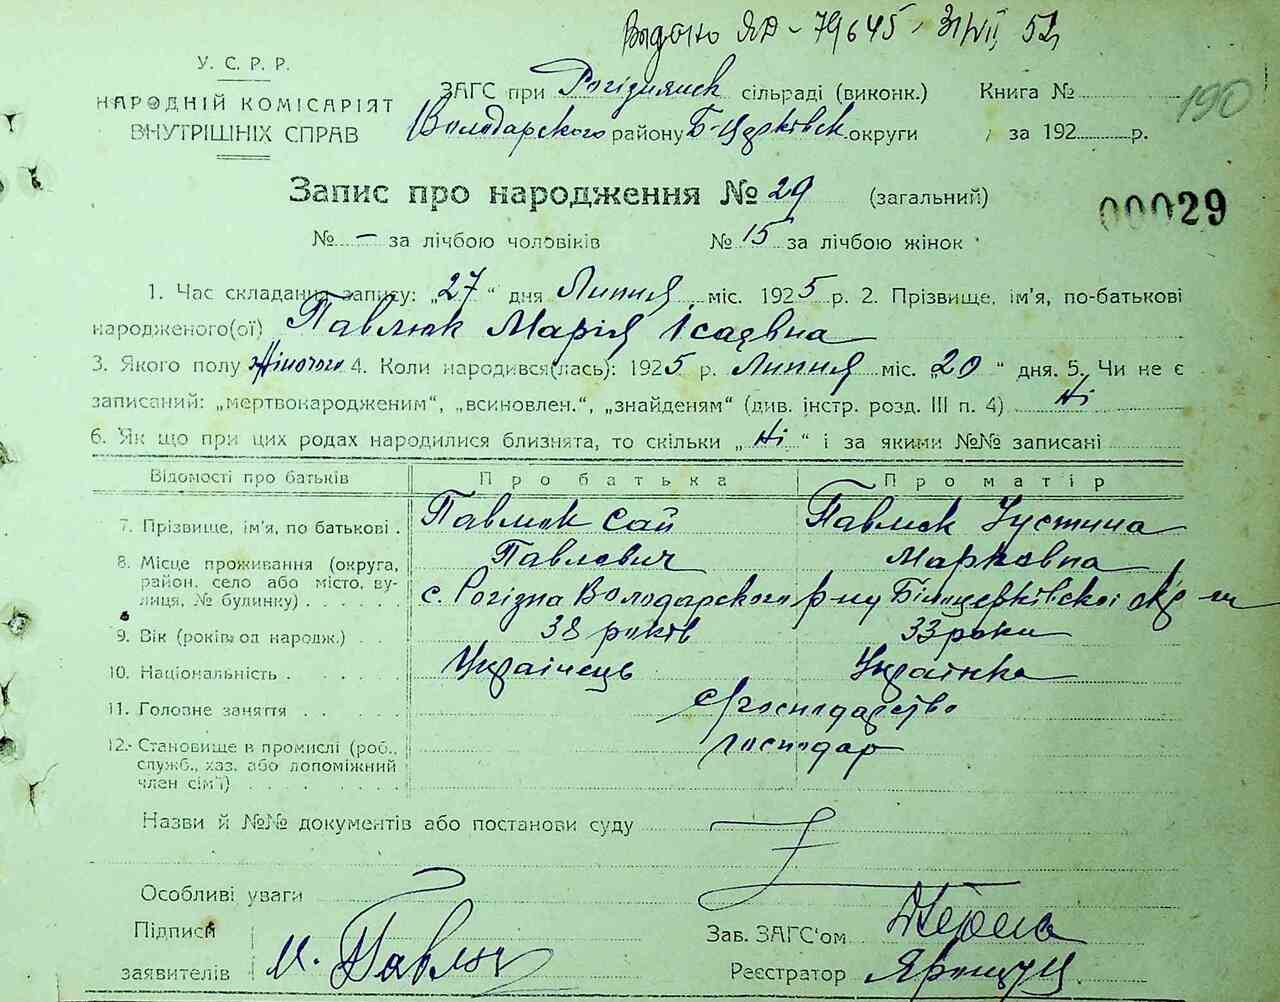 Видано ЯД - 79645 31/VII 52
У. С. Р. Р.
НАРОДНІЙ КОМІСАРІЯТ
ВНУТРІШНІХ СПРАВ
ЗАГС при Рогізнянск сільраді (виконк.) Книга №
190
Володарского району Б-Церківск округи за 192 р.
Запис про народження № 29 (загальний)
00029
№ — за лічбою чоловіків № 15 за лічбою жінок
1. Час складання запису: „27“ дня Липня міс. 1925 р. 2. Прізвище, ім'я, по-батькові
народженого(ої) Павлюк Марія Ісаєвна
3. Якого полу жіночого 4. Коли народився(лась): 1925 р. Липня міс. „20“ дня. 5. Чи не є
записаний: „мертвонародженим“, „всиновлен.“, „знайденям“ (див. інстр. розд. III п. 4) Ні
6. Як що при цих родах народилися близнята, то скільки „Ні“ і за якими №№ записані
Відомості про батьків Про батька Про матір
7. Прізвище, ім'я, по батькові . Павлюк Сай Павлюк Устина
Павлович Марковна
8. Місце проживання (округа,
район, село або місто, ву-
лиця, № будинку) . . . . . с. Рогізна Володарского р-ну Білоцерківскоі
9. Вік (років од народж.) . . . 38 років 33 роки
10. Національність . . . . . . Українець Українка
11. Головне заняття . . . . . . господарство
12. Становище в промислі (роб., господар
служб., хаз. або допоміжний
член сім'ї) . . . . . . . .
Назви й №№ документів або постанови суду
Особливі уваги
Підписи
заявителів И. Павлюк
Зав. ЗАГС'ом
Реєстратор